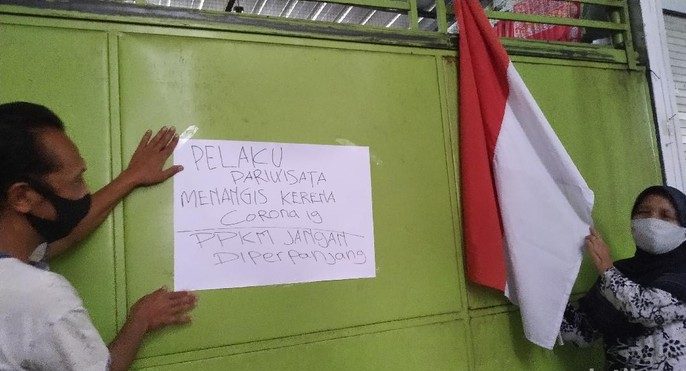 PELAKU
PARIWISATA
MENANGIS KERENA
CORONA 19
PPKM JANGAN
DiPerPanjang